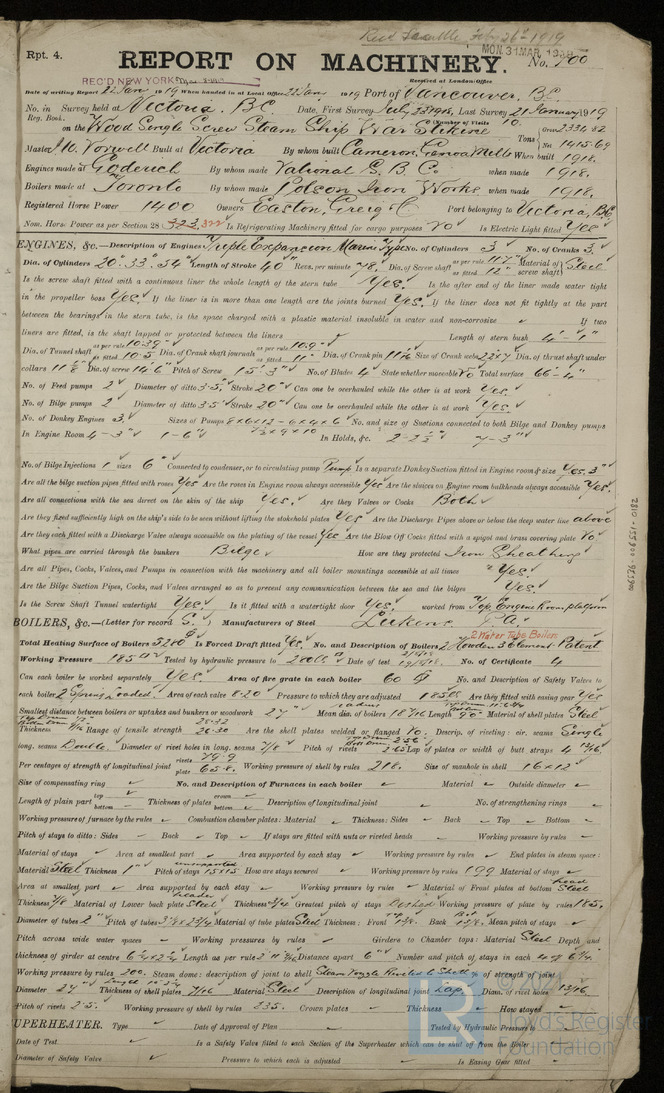 Rec'd Seattle Feb 26th 1919
MON. 31 MAR. 1919
Rpt. 4.
REPORT ON MACHINERY.
No. 700
REC'D NEW YORK
Received at London Office
Date of writing Report 22 Jan 1919 When handed in at Local Office 22 Jan 1919 Port of Vancouver, B.C.
No. in Survey held at Victoria, B.C. Date, First Survey July 23 1918, Last Survey 21 January 1919
Reg. Book. (Number of Visits 10.
on the Wood Single Screw Steam Ship War Stikine Tons Gross 2334.52 Net 1415.69
Master Built at Victoria By whom built Cameron, Genoa Mills When built 1918.
Engines made at Goderich By whom made National S. B. Co when made 1918.
Boilers made at Toronto By whom made Polson Iron Works when made 1918.
Registered Horse Power 1400 Owners Easton, Greig & C Port belonging to Victoria, BC
Nom. Horse Power as per Section 28 323, 322 Is Refrigerating Machinery fitted for cargo purposes No Is Electric Light fitted Yes
ENGINES, &c.—Description of Engines Triple Expansion Marine Type No. of Cylinders 3 No. of Cranks 3.
Dia. of Cylinders 20". 33". 54" Length of Stroke 40" Revs. per minute 78. Dia. of Screw shaft as per rule 11.7" as fitted 12" Material of screw shaft Steel
Is the screw shaft fitted with a continuous liner the whole length of the stern tube Yes. Is the after end of the liner made water tight
in the propeller boss Yes. If the liner is in more than one length are the joints burned Yes. If the liner does not fit tightly at the part
between the bearings in the stern tube, is the space charged with a plastic material insoluble in water and non-corrosive If two
liners are fitted, is the shaft lapped or protected between the liners Length of stern bush 4'-1"
Dia. of Tunnel shaft as per rule 10.39" as fitted 10.5 Dia. of Crank shaft journals as per rule 10.9" as fitted 11" Dia. of Crank pin 11 1/16 Size of Crank webs 22x7 Dia. of thrust shaft under
collars 11 1/8 Dia. of screw 14'-6" Pitch of Screw 15'.3" No. of Blades 4 State whether moveable No Total surface 66'-4"
No. of Feed pumps 2 Diameter of ditto 3.5" Stroke 20" Can one be overhauled while the other is at work Yes.
No. of Bilge pumps 2 Diameter of ditto 3.5" Stroke 20" Can one be overhauled while the other is at work Yes.
No. of Donkey Engines 3. Sizes of Pumps 8x6x12 - 6x4x6 7 1/2x9x10 No. and size of Suctions connected to both Bilge and Donkey pumps
In Engine Room 4-3" 1-6" In Holds, &c. 2-2 1/2" 7-3"
No. of Bilge Injections 1 sizes 6" Connected to condenser, or to circulating pump Pump Is a separate Donkey Suction fitted in Engine room & size Yes. 3"
Are all the bilge suction pipes fitted with roses Yes Are the roses in Engine room always accessible Yes Are the sluices on Engine room bulkheads always accessible Yes.
Are all connections with the sea direct on the skin of the ship Yes. Are they Valves or Cocks Both
Are they fixed sufficiently high on the ship's side to be seen without lifting the stokehold plates Yes Are the Discharge Pipes above or below the deep water line above
Are they each fitted with a Discharge Valve always accessible on the plating of the vessel Yes Are the Blow Off Cocks fitted with a spigot and brass covering plate No
What pipes are carried through the bunkers Bilge How are they protected Iron Sheathing
Are all Pipes, Cocks, Valves, and Pumps in connection with the machinery and all boiler mountings accessible at all times Yes.
Are the Bilge Suction Pipes, Cocks, and Valves arranged so as to prevent any communication between the sea and the bilges Yes.
Is the Screw Shaft Tunnel watertight Yes. Is it fitted with a watertight door Yes. worked from Top Engine Room platform
BOILERS, &c.—(Letter for record S.) Manufacturers of Steel Lukens, P.A.
2 Water Tube Boilers
Total Heating Surface of Boilers 5280 Is Forced Draft fitted Yes. No. and Description of Boilers 2 Howden 3 Element Patent
Working Pressure 185 Tested by hydraulic pressure to 280 Date of test No. of Certificate 4
Can each boiler be worked separately Yes. Area of fire grate in each boiler 60 No. and Description of Safety Valves to
each boiler 2 Spring Loaded. Area of each valve 8.20 Pressure to which they are adjusted 185 lbs Are they fitted with easing gear Yes
Smallest distance between boilers or uptakes and bunkers or woodwork 27" Mean dia. of boilers 18 7/16 Length 90" Material of shell plates Steel
Thickness Range of tensile strength 28-32 26-30 Are the shell plates welded or flanged No. Descrip. of riveting: cir. seams Single
long. seams Double Diameter of rivet holes in long. seams 7/8 Pitch of rivets Lap of plates or width of butt straps 4 13/16
Per centages of strength of longitudinal joint rivets 79.9 plate 65.8. Working pressure of shell by rules 218. Size of manhole in shell 16x12
Size of compensating ring No. and Description of Furnaces in each boiler Material Outside diameter
Length of plain part top bottom Thickness of plates crown bottom Description of longitudinal joint No. of strengthening rings
Working pressure of furnace by the rules Combustion chamber plates: Material Thickness: Sides Back Top Bottom
Pitch of stays to ditto: Sides Back Top If stays are fitted with nuts or riveted heads Working pressure by rules
Material of stays Area at smallest part Area supported by each stay Working pressure by rules End plates in steam space:
Material Steel Thickness 1" Pitch of stays unsupported 15x15 How are stays secured Working pressure by rules 199 Material of stays
Area at smallest part Area supported by each stay Working pressure by rules Material of Front plates at bottom Steel
Thickness 5/8 Material of Lower back plate Steel Thickness 3/4 Greatest pitch of stays Working pressure of plate by rules 185.
Diameter of tubes 2" Pitch of tubes 3 1/8x2 3/4 Material of tube plates Steel Thickness: Front Back Mean pitch of stays
Pitch across wide water spaces Working pressures by rules Girders to Chamber tops: Material Steel Depth and
thickness of girder at centre Length as per rule Distance apart 6" Number and pitch of stays in each 4 of 6 1/4.
Working pressure by rules 200. Steam dome: description of joint to shell % of strength of joint
Diameter 24" Thickness of shell plates 7/16 Material Steel Description of longitudinal joint Lap. Diam. of rivet holes 13/16
Pitch of rivets 2.5. Working pressure of shell by rules 235. Crown plates Thickness How stayed
SUPERHEATER. Type Date of Approval of Plan Tested by Hydraulic Pressure to
Date of Test Is a Safety Valve fitted to each Section of the Superheater which can be shut off from the Boiler
Diameter of Safety Valve Pressure to which each is adjusted Is Easing Gear fitted
© 2021
LR
Lloyd's Register
Foundation